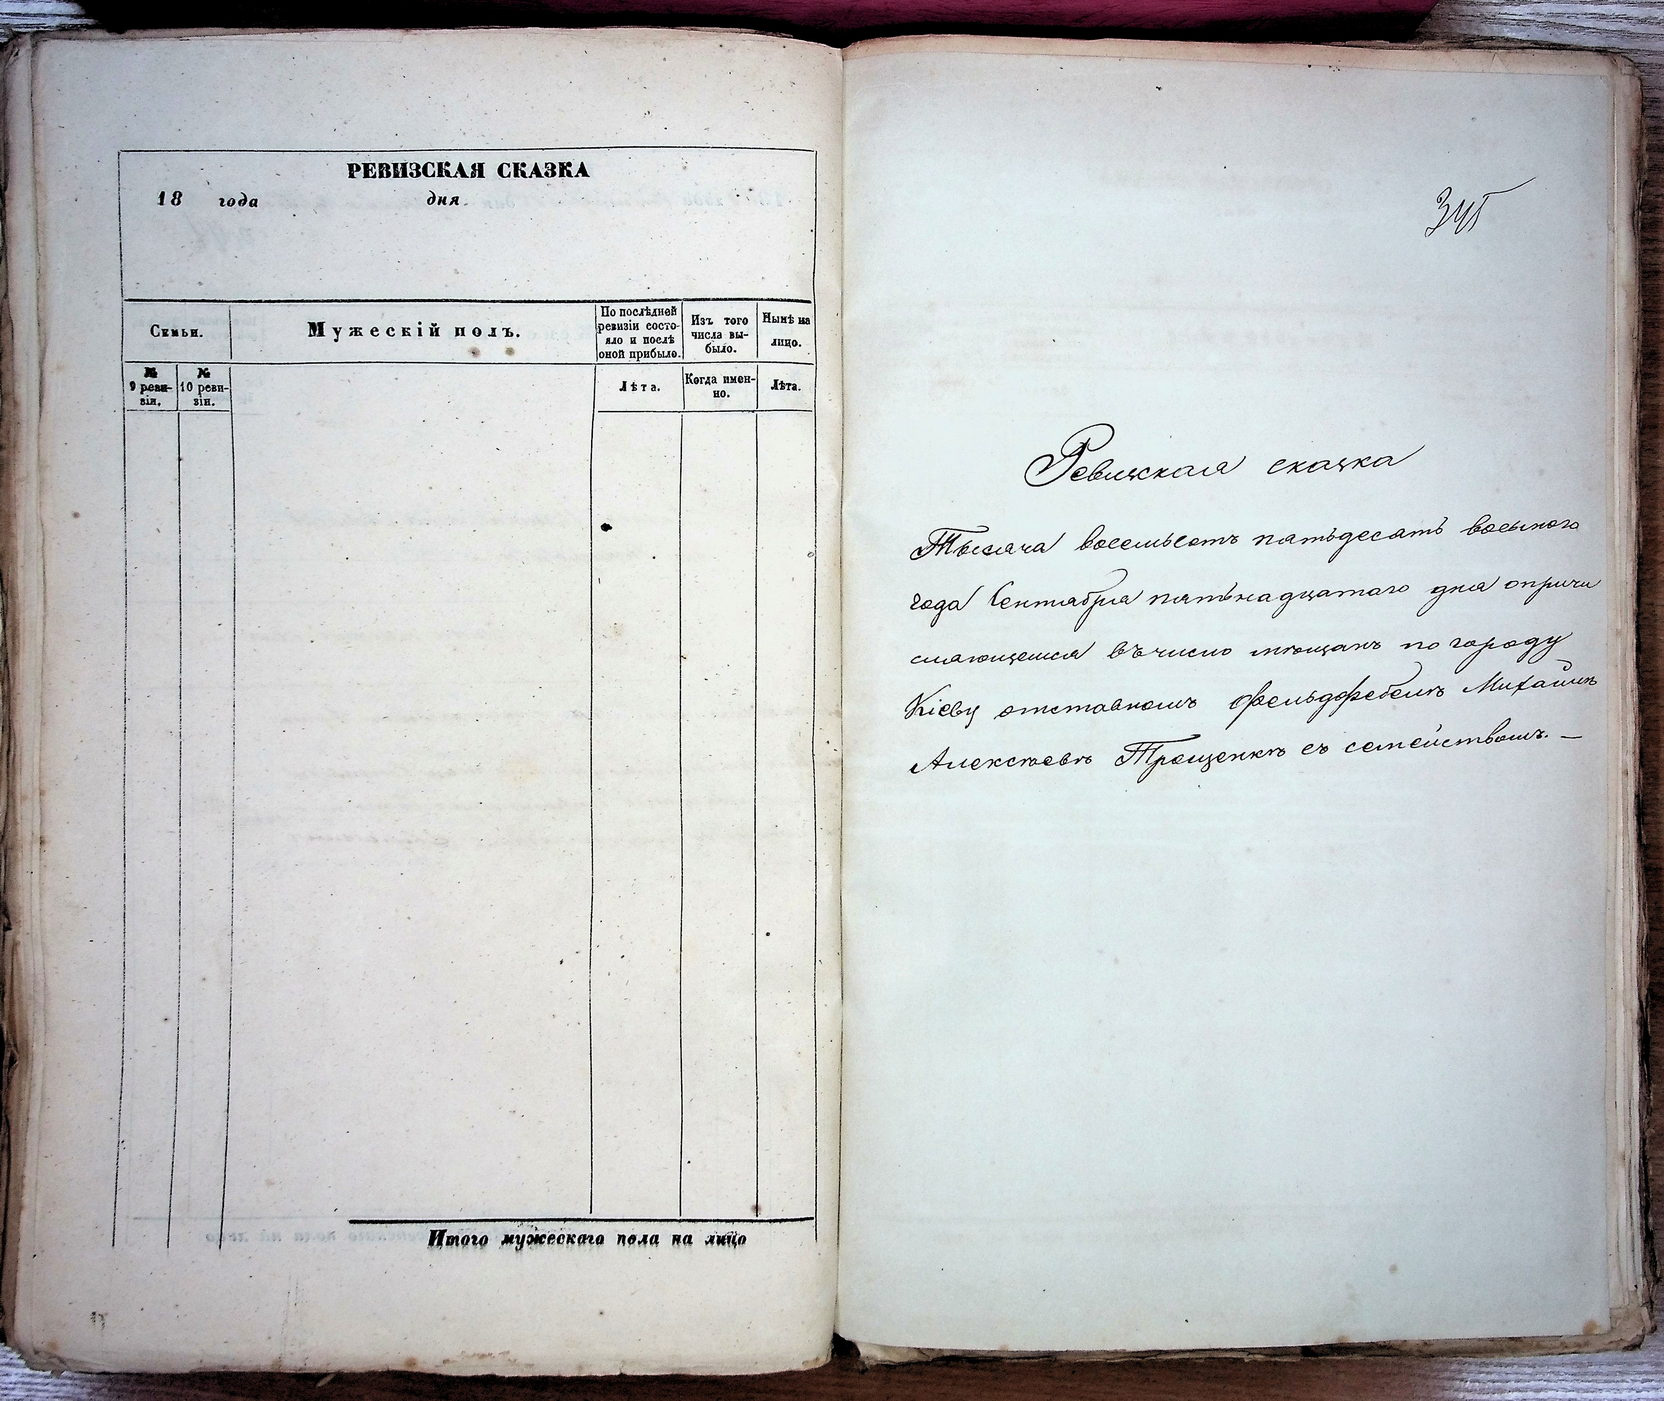 РЕВИЗСКАЯ СКАЗКА
18 года дня
Семьи.
Мужескій полъ.
По послѣдней
ревизіи состо-
яло и послѣ
оной прибыло.
Изъ того
числа вы-
было.
Нынѣ на
лицо.
№
9 реви-
зіи.
№
10 реви-
зіи.
Лѣта.
Когда имен-
но.
Лѣта.
Итого мужескаго пола на лицо
345
Ревизская сказка
Тысяча восемьсотъ пятьдесятъ восьмого
года Сентября пятьнадцатого дня о причи
сляющемся въ число мѣщанъ по городу
Кіеву отставномъ фельдфебелѣ Михайлѣ
Алексѣевѣ Трощенкѣ съ семействомъ. —